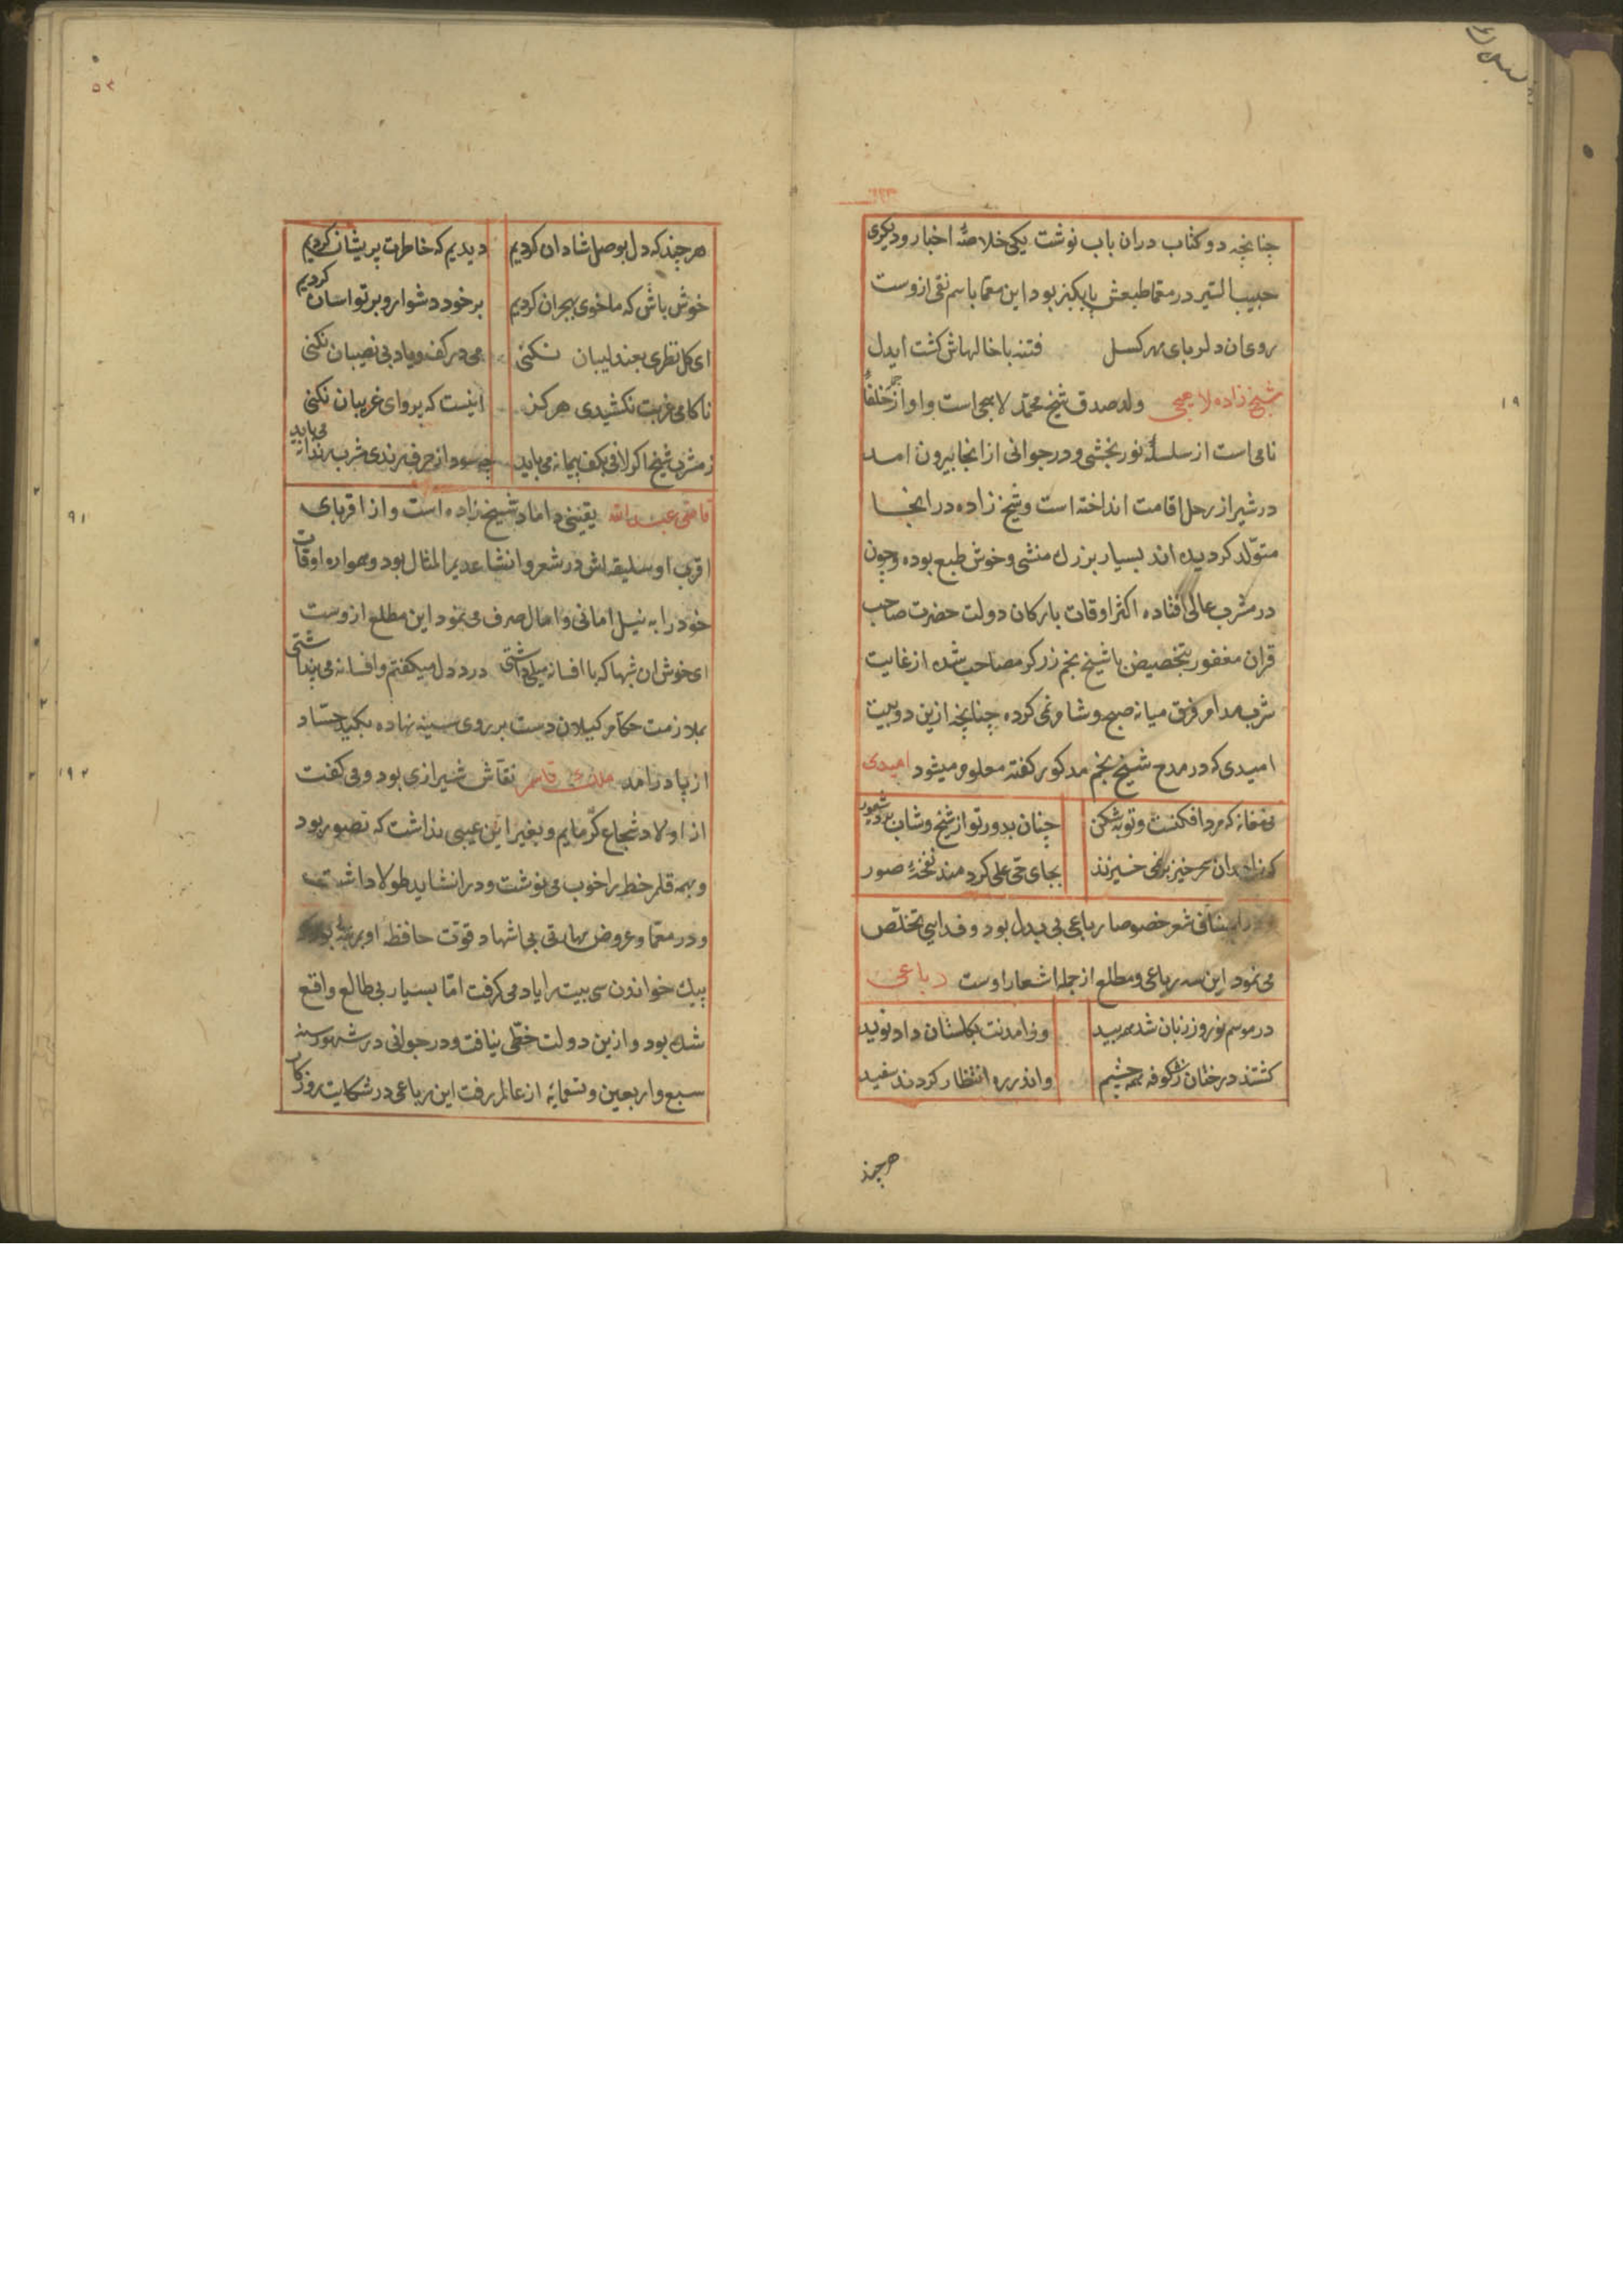 چنانچه دو کتاب دران باب نوشت یکی خلاصهٔ اخبار و دیکری
حبیب السیر در معما طبعش پاکیزه بود این معما باسم نقی ازوست
روی ان دلربای مهر کسل فتنه با خالهاش کشت ایدل
شیخ زاده لاهیجی ولد صدق شیخ محمد لاهیجی است و او از خلفأ
نامی است از سلسلهٔ نوربخشی و در جوانی از انجا بیرون امد
در شیراز رحل اقامت انداخته است و شیخ زاده در انجا
متولد کردیده اند بسیار بزرك منشی و خوش طبع بوده و چون
در مشرب عالی افتاده اکثر اوقات بارکان دولت حضرت صاحب
قران مغفور بتخصیص با شیخ نجم زرکر مصاحب شده از غایت
شرب مدام فرق میانه صبح و شام نمی کرده چنانچه ازین دو بیت
امیدی که در مدح شیخ نجم مذکور کفته معلوم میشود امیدی
می مغانه که مرد افکنست و توبه شکن چنان بدور تو از شیخ و شاب برد شعور
که زاهدان سحرخیز برنمی خیزند بجای حی علی کر دمند نفخهٔ صور
شعر خصوصا رباعی بی بدل بود و فدایی تخلص
می نمود این سه رباعی و مطلع از جمله اشعار اوست رباعی
در موسم نوروز زبان شد مه بید وز امدنت بکلستان داد نوید
کشتند درختان ز شکوفه همه چشم واندر ره انتظار کردند سفید
هرچند
هر چند که دل بوصل شادان کردیم دیدیم که خاطرت پریشان کردیم
خوش باش که ما خوی بهجران کردیم بر خود دشوار و بر تو اسان کردیم
ای کل نظری بعندلیبان نکنی می در کف و یاد بی نصیبان نکنی
ناکامی غربت نکشیدی هرکز اینست که پروای غریبان نکنی
ز مشرب شیخ اکر لافی بکف پیمانه می باید چه سود از حرف رندی مشرب رندانه می باید
قاضی عبدالله یقینی داماد شیخ زاده است و از اقربای
اقرب او سلیقه اش در شعر و انشا عدیم المثال بود و همواره اوقات
خود را به نیل امانی و امال صرف می نمود این مطلع ازوست
ای خوش ان شبها که با افسانه میلی داشتی درد دل میکفتم و افسانه می پنداشتی
بملازمت حکام کیلان دست بر روی سینه نهاده بکید حساد
از پا درامد ملك قاسم نقاش شیرازی بود و می کفت
از اولاد شجاع کرمایم و بغیر این عیبی نداشت که تصور بود
و بهمه قلم خط را خوب می نوشت و در انشا ید طولا داشت
و در معما و عروض مهارتی بی اشهاد قوت حافظه او بمرتبهٔ بود که
بیك خواندن سی بیت را یاد می کرفت اما بسیار بی طالع واقع
شده بود و ازین دولت حظی نیافت و در جوانی در شهور سنه
سبع و اربعین و تسعمایه از عالم رفت این رباعی در شکایت روزکار
۹۱
۹۲